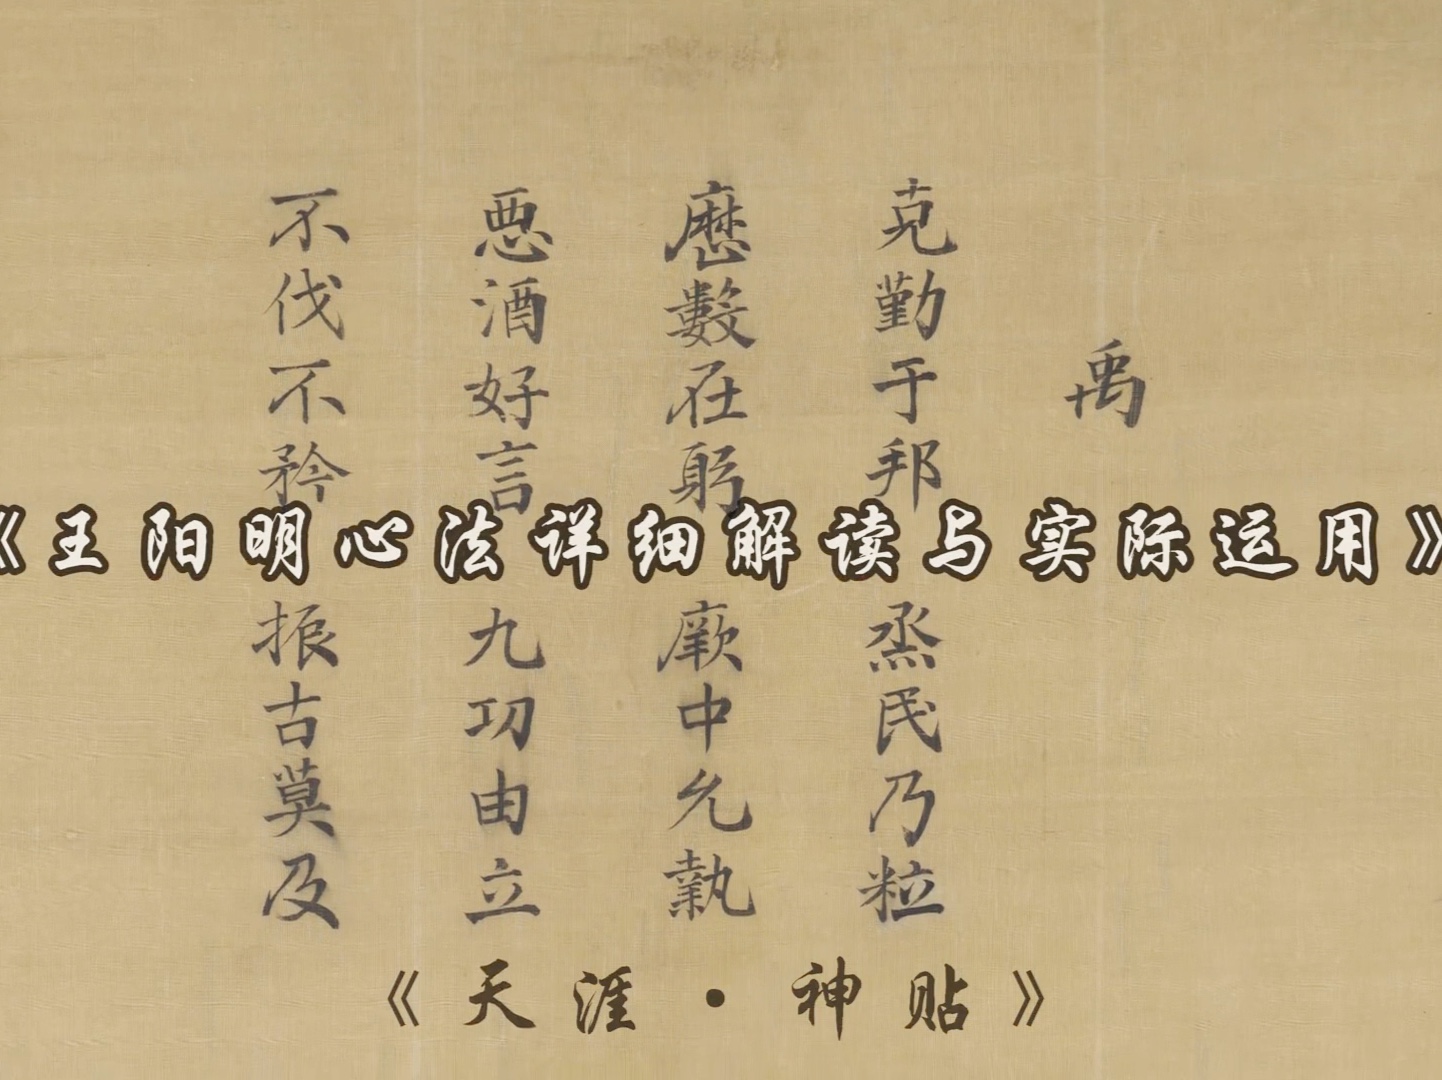 禹
克勤于邦
烝民乃粒
厯數在躬
厥中允執
惡酒好言
九功由立
不伐不矜
振古莫及
《王阳明心法详细解读与实际运用》
《天涯·神贴》